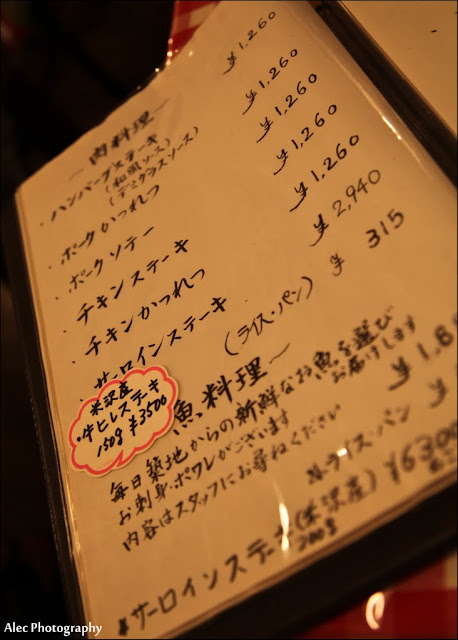 ～肉料理～
・ハンバーグステーキ ¥1,260
(和風ソース)
(デミグラスソース)
・ポークかつれつ ¥1,260
・ポークソテー ¥1,260
・チキンステーキ ¥1,260
・チキンかつれつ ¥1,260
・サーロインステーキ ¥2,940
(ライス・パン) ¥315
米沢産
・牛ヒレステーキ
150g ¥3500
魚料理～
毎日築地からの新鮮なお魚を選び
お刺身・ポワレがございます お届けします
内容はスタッフにお尋ねください
¥1,8
ライス・パン ¥
サーロインステーキ(米沢産) ¥6300
200g
Alec Photography